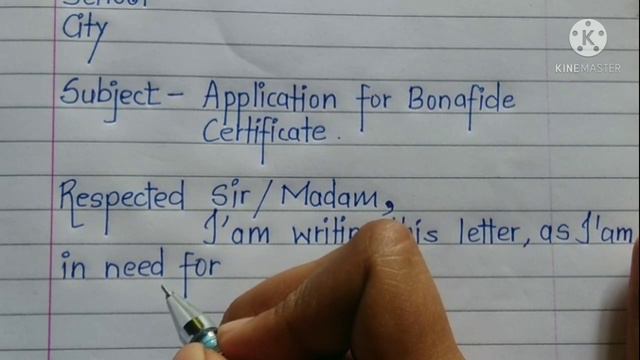 School
City
Subject - Application for Bonafide
Certificate.
Respected Sir/Madam,
I'am writing this letter, as I'am
in need for
KINEMASTER